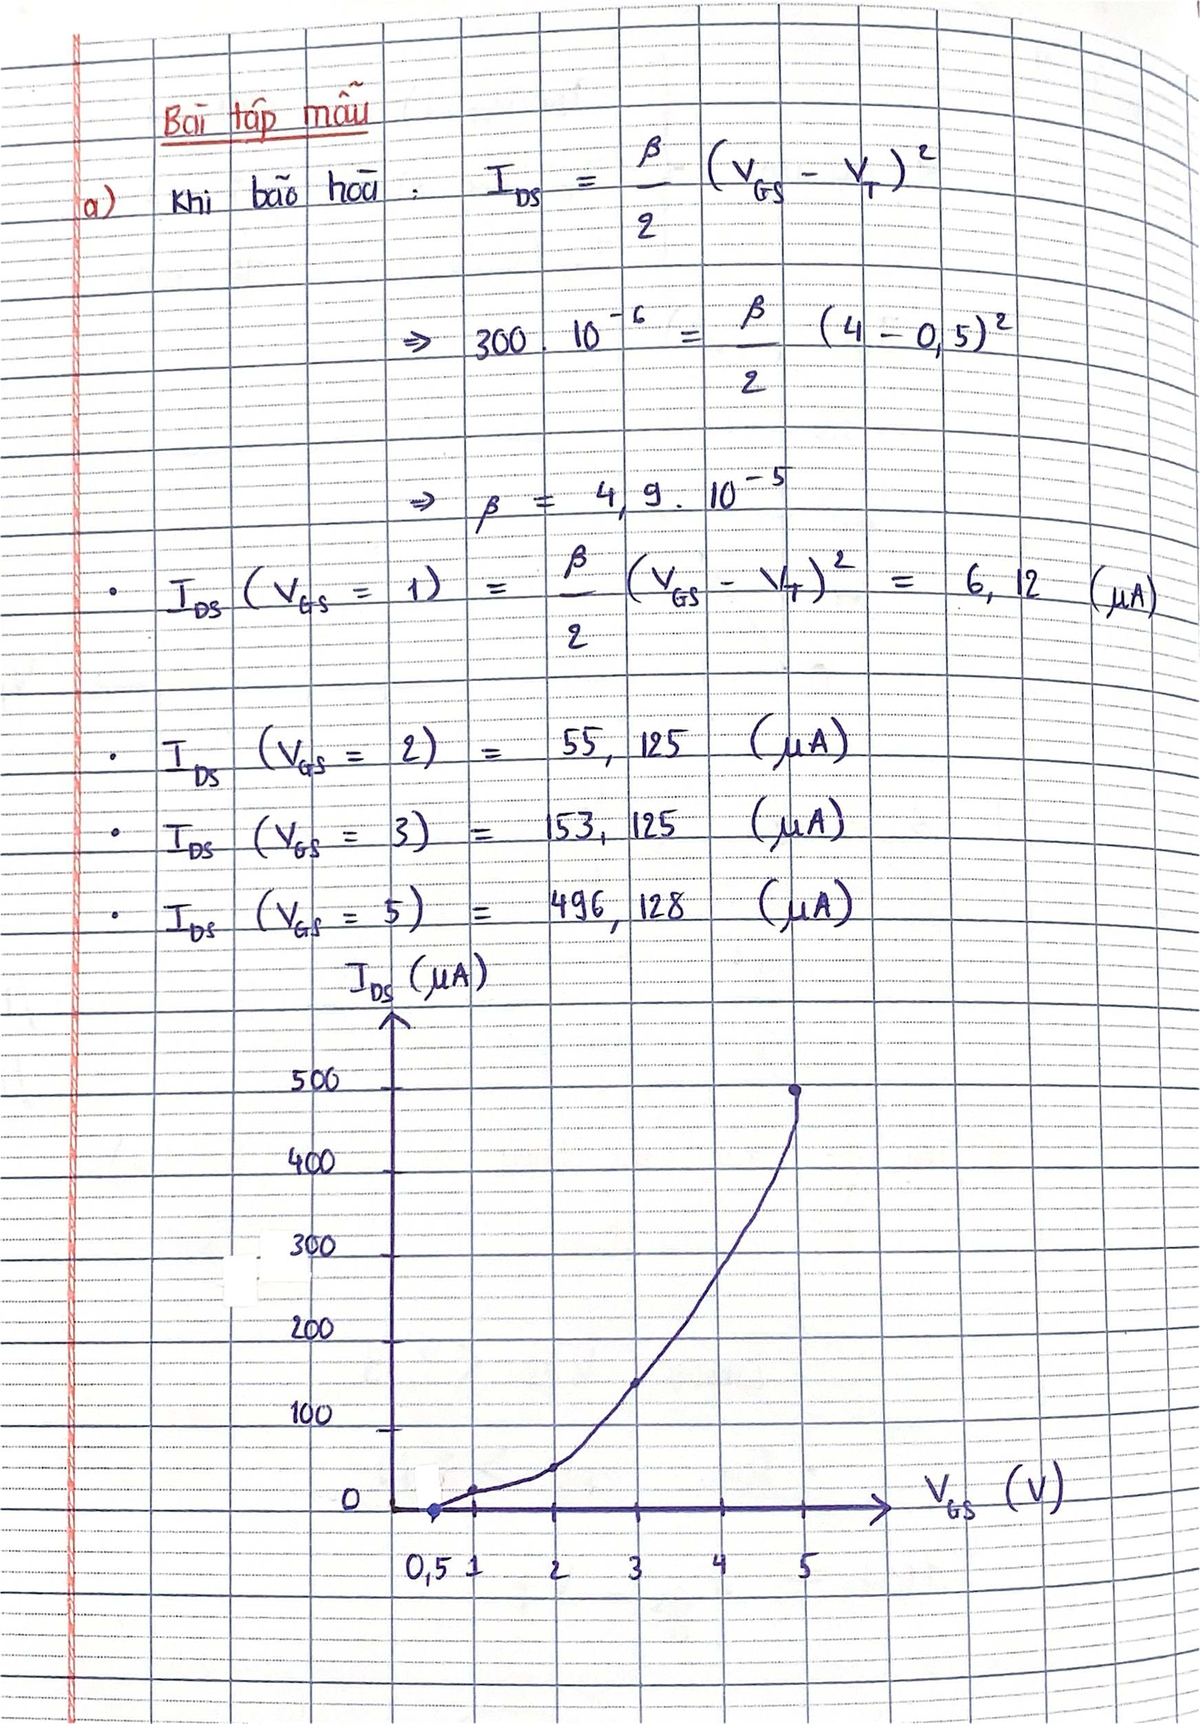 Bài tập mẫu
a) Khi bão hoà : I_DS = β/2 (V_GS - V_T)²
⇒ 300 . 10⁻⁶ = β/2 (4 - 0,5)²
⇒ β = 4,9 . 10⁻⁵
• I_DS (V_GS = 1) = β/2 (V_GS - V_T)² = 6,12 (μA)
• I_DS (V_GS = 2) = 55,125 (μA)
• I_DS (V_GS = 3) = 153,125 (μA)
• I_DS (V_GS = 5) = 496,128 (μA)
I_DS (μA)
500
400
300
200
100
0
V_GS (V)
0,5 1 2 3 4 5